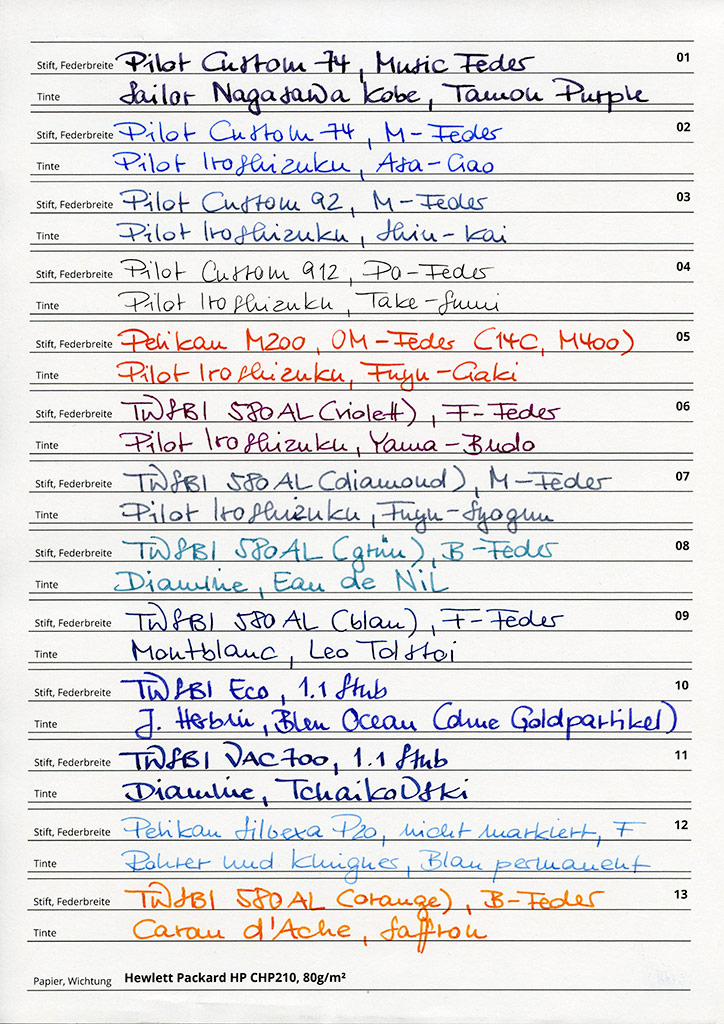 Stift, Federbreite Pilot Custom 74, Music Feder 01
Tinte Sailor Nagasawa Kobe, Tamon Purple
Stift, Federbreite Pilot Custom 74, M-Feder 02
Tinte Pilot Iroshizuku, Asa-Gao
Stift, Federbreite Pilot Custom 92, M-Feder 03
Tinte Pilot Iroshizuku, Shin-kai
Stift, Federbreite Pilot Custom 912, Po-Feder 04
Tinte Pilot Iroshizuku, Take-Sumi
Stift, Federbreite Pelikan M200, OM-Feder (14C, M400) 05
Tinte Pilot Iroshizuku, Fuyu-Gaki
Stift, Federbreite TWSBI 580AL (violett), F-Feder 06
Tinte Pilot Iroshizuku, Yama-Budo
Stift, Federbreite TWSBI 580AL (diamond), M-Feder 07
Tinte Pilot Iroshizuku, Fuyu-Syogun
Stift, Federbreite TWSBI 580AL (grün), B-Feder 08
Tinte Diamine, Eau de Nil
Stift, Federbreite TWSBI 580AL (blau), F-Feder 09
Tinte Montblanc, Leo Tolstoi
Stift, Federbreite TWSBI Eco, 1.1 Stub 10
Tinte J. Herbin, Bleu Ocean (ohne Goldpartikel)
Stift, Federbreite TWSBI VAC700, 1.1 Stub 11
Tinte Diamine, Tchaikovski
Stift, Federbreite Pelikan Silvexa P20, nicht markiert, F 12
Tinte Rohrer und Klingner, Blau permanent
Stift, Federbreite TWSBI 580AL (orange), B-Feder 13
Tinte Caran d'Ache, Saffron
Papier, Wichtung Hewlett Packard HP CHP210, 80g/m²